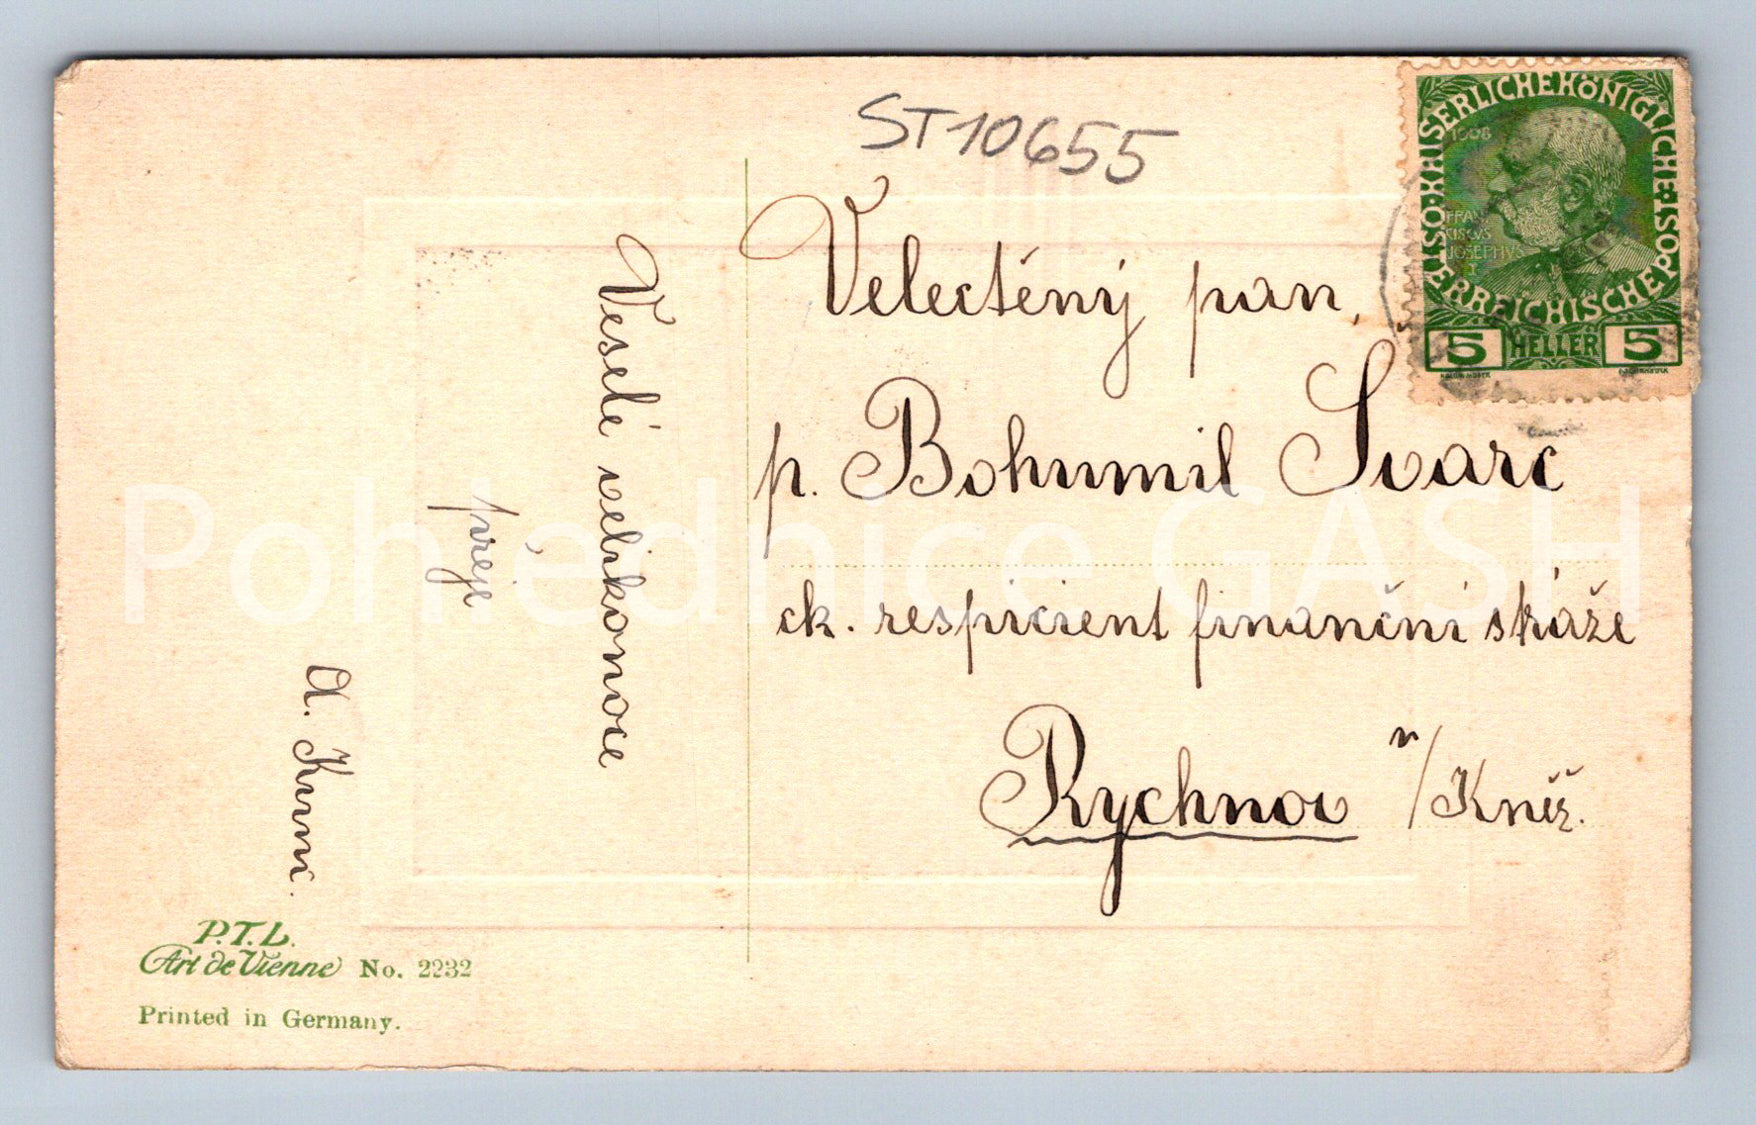 ST10655
KAISERLICHE KÖNIGLICHE ÖSTERREICHISCHE POST
1908
FRAN
CISCVS
JOSEPHVS
I
5 HELLER 5
Velectěný pan,
p. Bohumil Švarc
ck. respicient finanční stráže
Rychnov n/Kněž.
Veselé velikonoce
přeje
A. Kunní.
Pohlednice GASH
P.T.L.
Art de Vienne No. 2232
Printed in Germany.